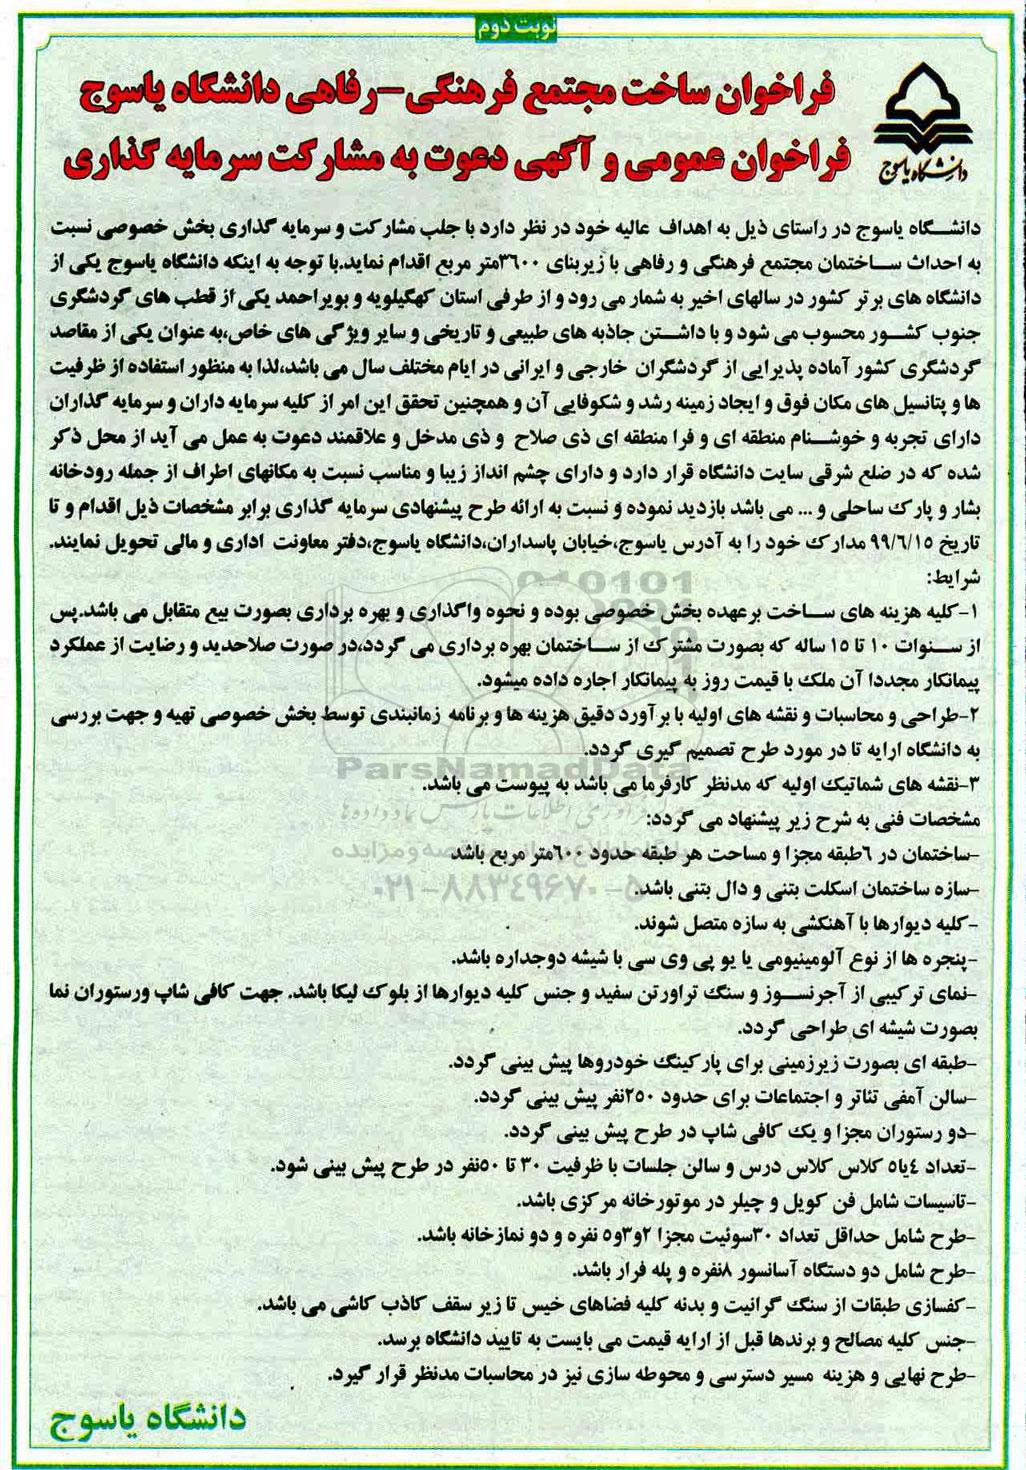 نوبت دوم
فراخوان ساخت مجتمع فرهنگی-رفاهی دانشگاه یاسوج
فراخوان عمومی و آگهی دعوت به مشارکت سرمایه گذاری
دانشگاه یاسوج
دانشگاه یاسوج در راستای ذیل به اهداف عالیه خود در نظر دارد با جلب مشارکت و سرمایه گذاری بخش خصوصی نسبت
به احداث ساختمان مجتمع فرهنگی و رفاهی با زیربنای ۳۶۰۰متر مربع اقدام نماید.با توجه به اینکه دانشگاه یاسوج یکی از
دانشگاه های برتر کشور در سالهای اخیر به شمار می رود و از طرفی استان کهگیلویه و بویراحمد یکی از قطب های گردشگری
جنوب کشور محسوب می شود و با داشتن جاذبه های طبیعی و تاریخی و سایر ویژگی های خاص،به عنوان یکی از مقاصد
گردشگری کشور آماده پذیرایی از گردشگران خارجی و ایرانی در ایام مختلف سال می باشد،لذا به منظور استفاده از ظرفیت
ها و پتانسیل های مکان فوق و ایجاد زمینه رشد و شکوفایی آن و همچنین تحقق این امر از کلیه سرمایه داران و سرمایه گذاران
دارای تجربه و خوشنام منطقه ای و فرا منطقه ای ذی صلاح و ذی مدخل و علاقمند دعوت به عمل می آید از محل ذکر
شده که در ضلع شرقی سایت دانشگاه قرار دارد و دارای چشم انداز زیبا و مناسب نسبت به مکانهای اطراف از جمله رودخانه
بشار و پارک ساحلی و ... می باشد بازدید نموده و نسبت به ارائه طرح پیشنهادی سرمایه گذاری برابر مشخصات ذیل اقدام و تا
تاریخ ۹۹/۶/۱۵ مدارک خود را به آدرس یاسوج،خیابان پاسداران،دانشگاه یاسوج،دفتر معاونت اداری و مالی تحویل نمایند.
شرایط:
۱-کلیه هزینه های ساخت برعهده بخش خصوصی بوده و نحوه واگذاری و بهره برداری بصورت بیع متقابل می باشد.پس
از سنوات ۱۰ تا ۱۵ ساله که بصورت مشترک از ساختمان بهره برداری می گردد،در صورت صلاحدید و رضایت از عملکرد
پیمانکار مجددا آن ملک با قیمت روز به پیمانکار اجاره داده میشود.
۲-طراحی و محاسبات و نقشه های اولیه با برآورد دقیق هزینه ها و برنامه زمانبندی توسط بخش خصوصی تهیه و جهت بررسی
به دانشگاه ارایه تا در مورد طرح تصمیم گیری گردد.
ParsNamadData
۳-نقشه های شماتیک اولیه که مدنظر کارفرما می باشد به پیوست می باشد.
مشخصات فنی به شرح زیر پیشنهاد می گردد:
-ساختمان در ۶طبقه مجزا و مساحت هر طبقه حدود ۶۰۰متر مربع باشد
-سازه ساختمان اسکلت بتنی و دال بتنی باشد.
۰۲۱-۸۸۳۴۹۶۷۰-۵
-کلیه دیوارها با آهنکشی به سازه متصل شوند.
-پنجره ها از نوع آلومینیومی یا یو پی وی سی با شیشه دوجداره باشد.
-نمای ترکیبی از آجرنسوز و سنگ تراورتن سفید و جنس کلیه دیوارها از بلوک لیکا باشد. جهت کافی شاپ ورستوران نما
بصورت شیشه ای طراحی گردد.
-طبقه ای بصورت زیرزمینی برای پارکینگ خودروها پیش بینی گردد.
-سالن آمفی تئاتر و اجتماعات برای حدود ۲۵۰نفر پیش بینی گردد.
-دو رستوران مجزا و یک کافی شاپ در طرح پیش بینی گردد.
-تعداد ۴یا۵ کلاس کلاس درس و سالن جلسات با ظرفیت ۳۰ تا ۵۰نفر در طرح پیش بینی شود.
-تاسیسات شامل فن کویل و چیلر در موتورخانه مرکزی باشد.
-طرح شامل حداقل تعداد ۳۰سوئیت مجزا ۲و۳و۵ نفره و دو نمازخانه باشد.
-طرح شامل دو دستگاه آسانسور ۸نفره و پله فرار باشد.
-کفسازی طبقات از سنگ گرانیت و بدنه کلیه فضاهای خیس تا زیر سقف کاذب کاشی می باشد.
-جنس کلیه مصالح و برندها قبل از ارایه قیمت می بایست به تایید دانشگاه برسد.
-طرح نهایی و هزینه مسیر دسترسی و محوطه سازی نیز در محاسبات مدنظر قرار گیرد.
دانشگاه یاسوج